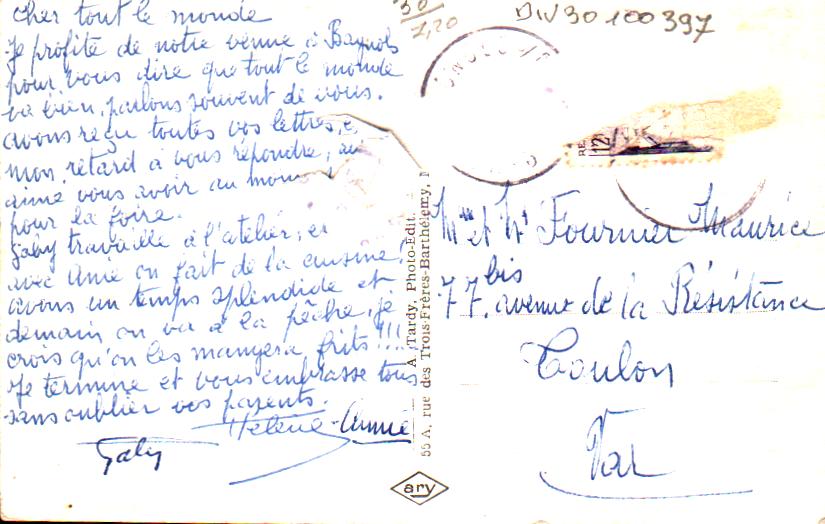 cher tout le monde
Je profite de notre venue à Bagnols
pour vous dire que tout le monde
va bien, parlons souvent de vous.
avons reçu toutes vos lettres,
mon retard à vous répondre,
aime vous avoir au moins
pour la foire.
Gaby travaille à l'atelier, et
avec Anie on fait de la cuisine!
avons un temps splendide et
demain on va à la pêche, je
crois qu'on les mangera frits!!!
Je termine et vous embrasse tous
sans oublier vos parents.
Hélène - Annie
Gaby
A. Tardy, Photo-Edit.
55 A, rue des Trois-Frères-Barthélemy, M
ary
30
7,20
DIV30100397
RE
12
Mme et Mr Fournier Maurice
77 bis, avenue de la Résistance
Toulon
Var